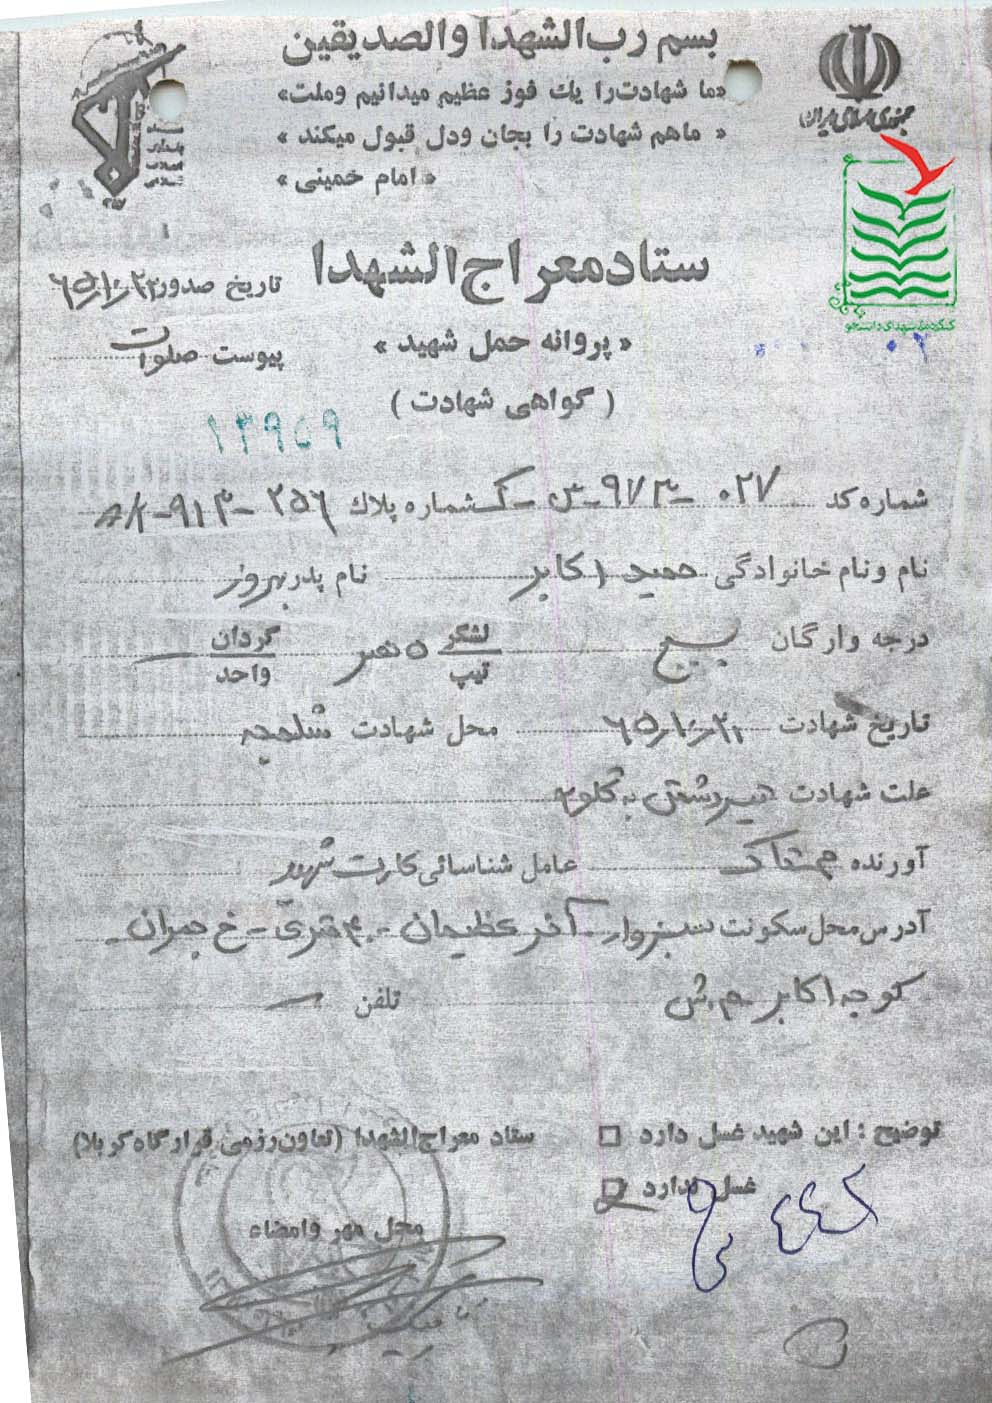 بسم رب الشهدا والصدیقین
«ما شهادت را یك فوز عظیم میدانیم وملت»
« ماهم شهادت را بجان ودل قبول میکند »
« امام خمینی »
جمهوری اسلامی ایران
سپاه پاسداران انقلاب اسلامی
کنگره ملی شهدای دانشجو
ستاد معراج الشهدا
تاریخ صدور ۶۵/۱۰/۲۳
« پروانه حمل شهید »
پیوست صلوات
( گواهی شهادت )
شماره کد ۰۲۷-۹۷۳-ش-ک شماره پلاك ۲۵۶-۹۱۳
نام و نام خانوادگی حمید اکابر نام پدر بهروز
درجه وارگان بسیج لشگر تیپ ۵ نصر گردان واحد —
تاریخ شهادت ۶۵/۱۰/۲۱ محل شهادت شلمچه
علت شهادت تیر به گلو
آورنده عامل شناسائی کارت شهید
آدرس محل سکونت سبزوار - آخر عظیمیان - ۴۰ متری - خ چمران -
کوچه اکابر تلفن —
توضیح : این شهید غسل دارد □
غسل ندارد □
ستاد معراج الشهدا (تعاون رزمی قرارگاه کربلا)
محل مهر وامضاء